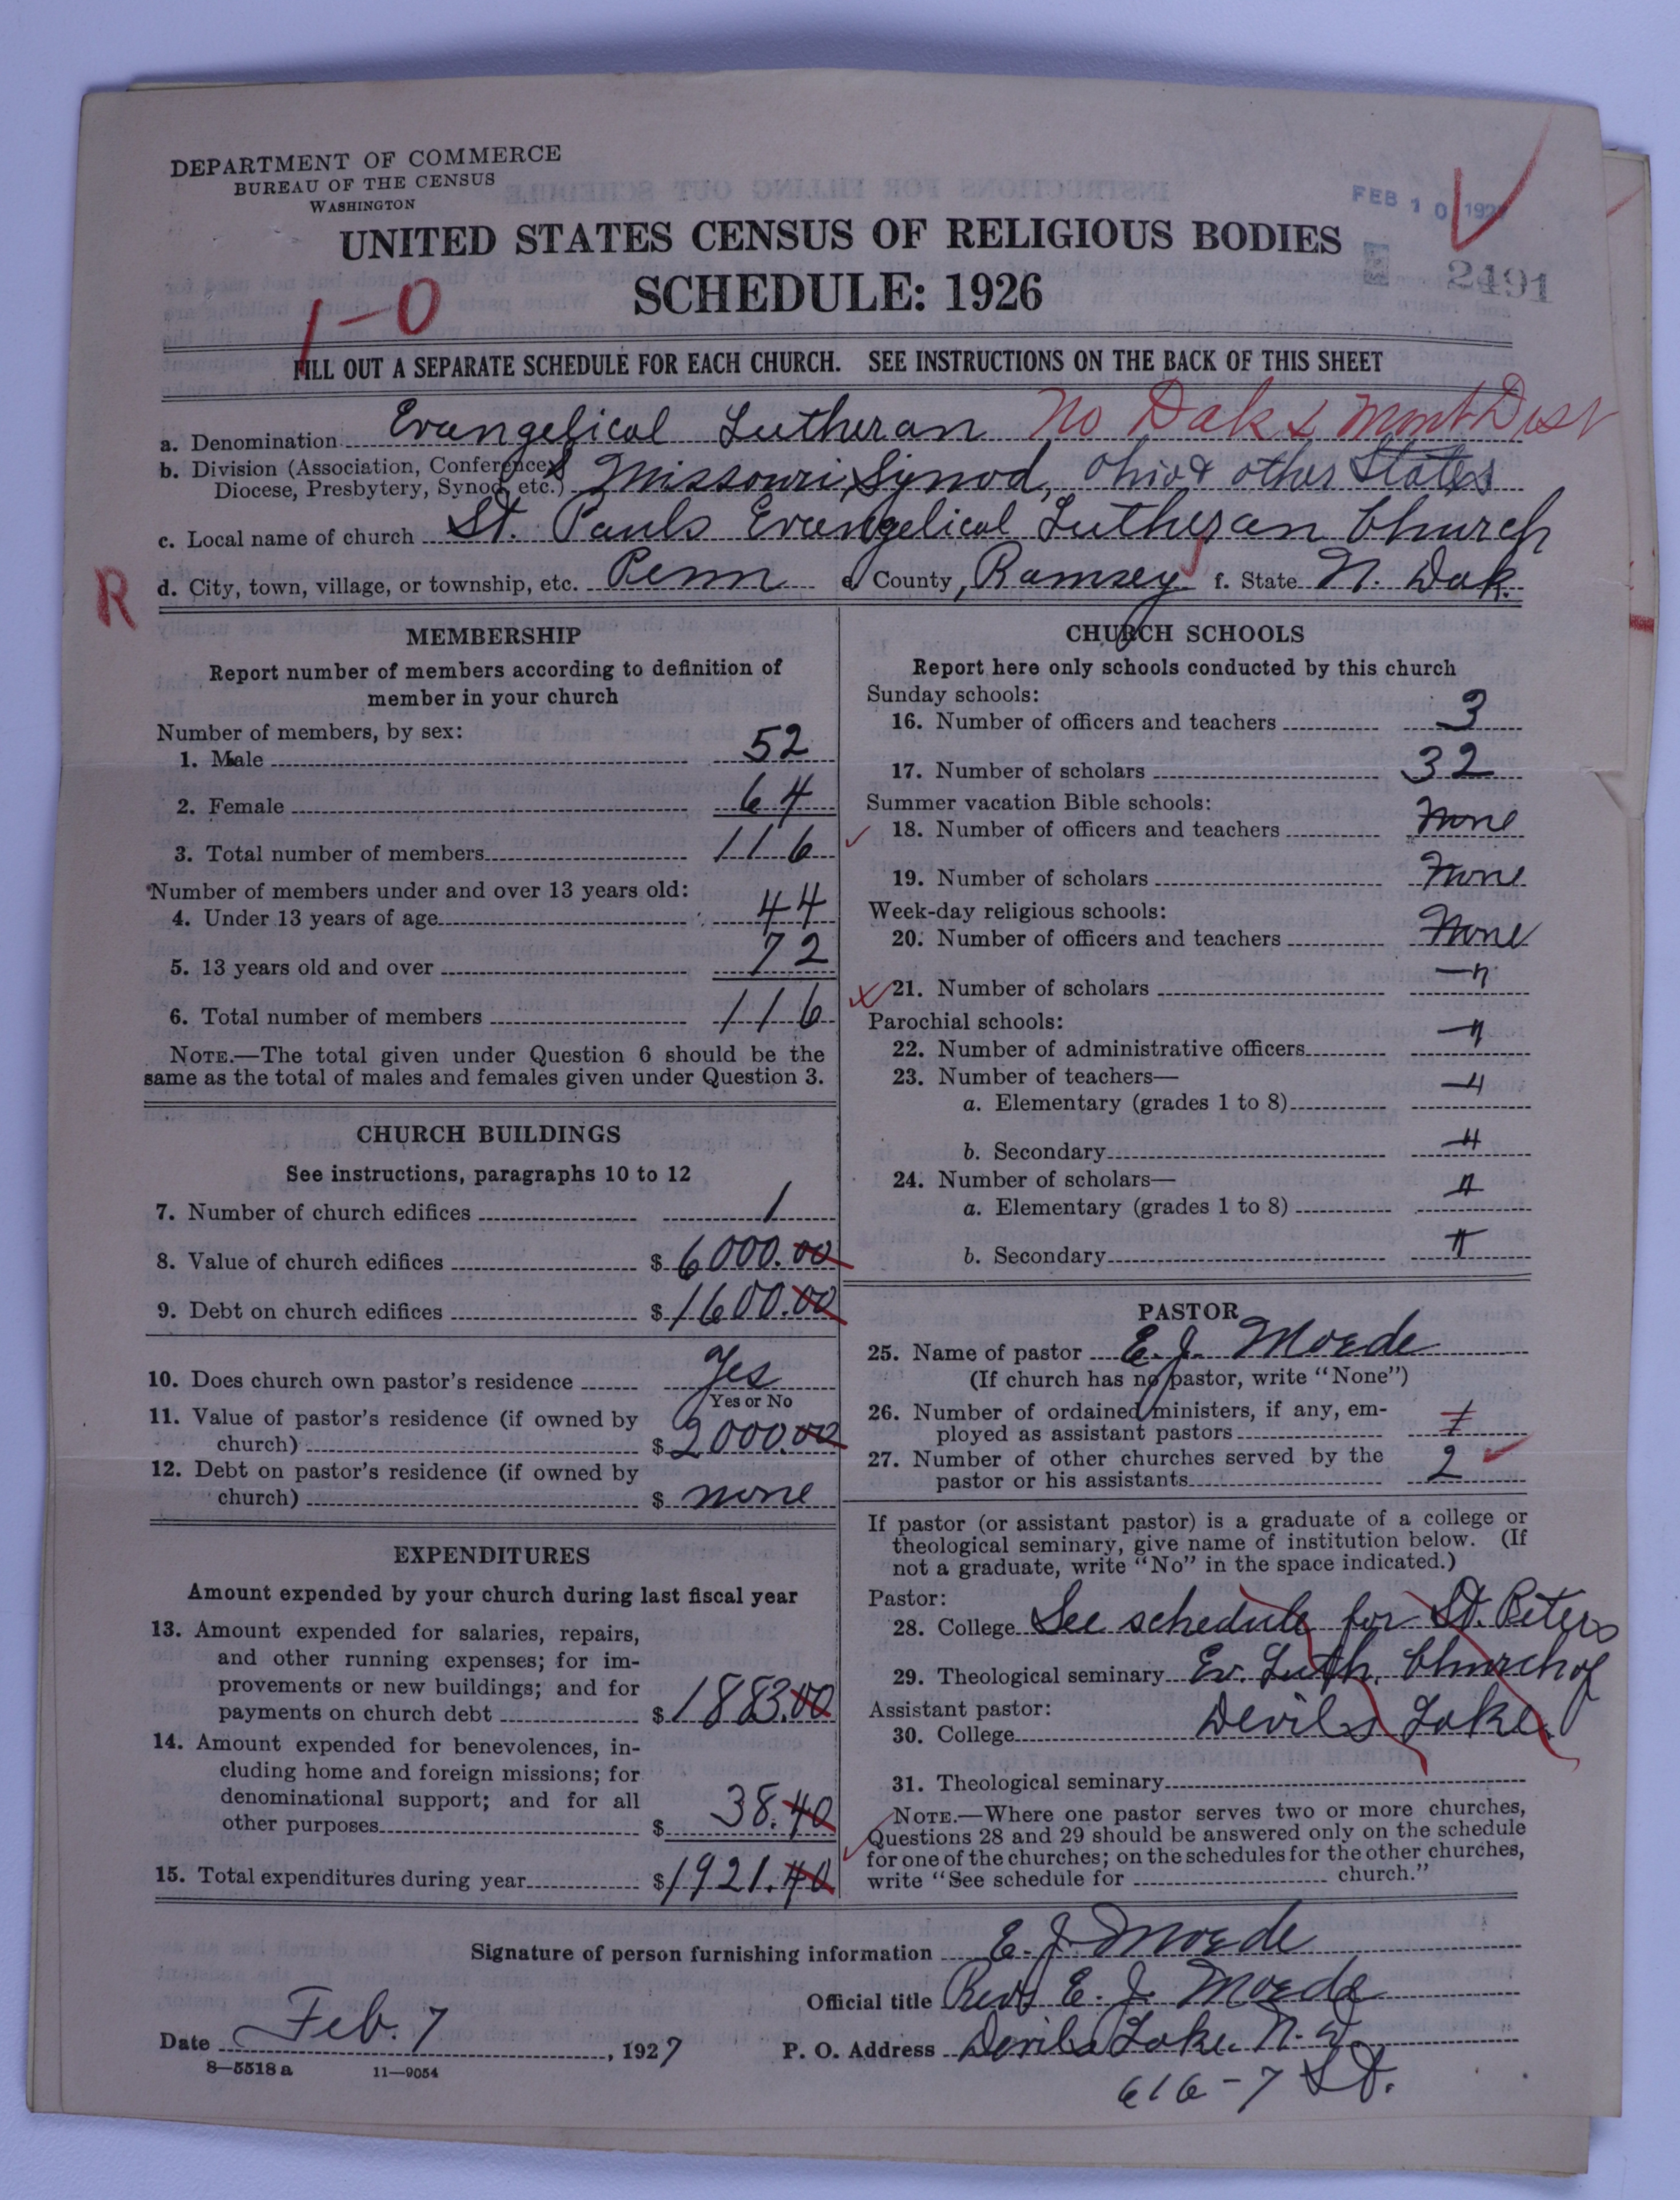 DEPARTMENT OF COMMERCE
BUREAU OF THE CENSUS
WASHINGTON
FEB 10 192
UNITED STATES CENSUS OF RELIGIOUS BODIES
SCHEDULE: 1926
2491
1-0
FILL OUT A SEPARATE SCHEDULE FOR EACH CHURCH. SEE INSTRUCTIONS ON THE BACK OF THIS SHEET
a. Denomination Evangelical Lutheran No Dak & Mont Dist
b. Division (Association, Conference,
Diocese, Presbytery, Synod, etc.) Missouri Synod, Ohio & other States
c. Local name of church St. Pauls Evangelical Lutheran Church
R d. City, town, village, or township, etc. Penn e. County, Ramsey f. State N. Dak.
MEMBERSHIP
Report number of members according to definition of
member in your church
Number of members, by sex:
1. Male 52
2. Female 64
3. Total number of members 116
Number of members under and over 13 years old:
4. Under 13 years of age 44
5. 13 years old and over 72
6. Total number of members 116
NOTE.—The total given under Question 6 should be the
same as the total of males and females given under Question 3.
CHURCH BUILDINGS
See instructions, paragraphs 10 to 12
7. Number of church edifices 1
8. Value of church edifices $ 6000.00
9. Debt on church edifices $ 1600.00
10. Does church own pastor's residence Yes
Yes or No
11. Value of pastor's residence (if owned by
church) $ 2000.00
12. Debt on pastor's residence (if owned by
church) $ none
EXPENDITURES
Amount expended by your church during last fiscal year
13. Amount expended for salaries, repairs,
and other running expenses; for im-
provements or new buildings; and for
payments on church debt $ 1883.00
14. Amount expended for benevolences, in-
cluding home and foreign missions; for
denominational support; and for all
other purposes $ 38.40
15. Total expenditures during year $ 1921.40
CHURCH SCHOOLS
Report here only schools conducted by this church
Sunday schools:
16. Number of officers and teachers 3
17. Number of scholars 32
Summer vacation Bible schools:
18. Number of officers and teachers None
19. Number of scholars None
Week-day religious schools:
20. Number of officers and teachers None
21. Number of scholars — "
Parochial schools:
22. Number of administrative officers — "
23. Number of teachers—
a. Elementary (grades 1 to 8) — "
b. Secondary — "
24. Number of scholars—
a. Elementary (grades 1 to 8) — "
b. Secondary — "
PASTOR
25. Name of pastor E. J. Moede
(If church has no pastor, write "None")
26. Number of ordained ministers, if any, em-
ployed as assistant pastors
27. Number of other churches served by the
pastor or his assistants 2
If pastor (or assistant pastor) is a graduate of a college or
theological seminary, give name of institution below. (If
not a graduate, write "No" in the space indicated.)
Pastor:
28. College See schedule for St. Peters
29. Theological seminary Ev. Luth. Church of
Assistant pastor:
30. College Devils Lake.
31. Theological seminary
NOTE.—Where one pastor serves two or more churches,
Questions 28 and 29 should be answered only on the schedule
for one of the churches; on the schedules for the other churches,
write "See schedule for church."
Signature of person furnishing information E. J. Moede
Official title Rev. E. J. Moede
Date Feb. 7, 1927 P. O. Address Devils Lake. N. D.
8—5518 a 11—9054
616 - 7 St.